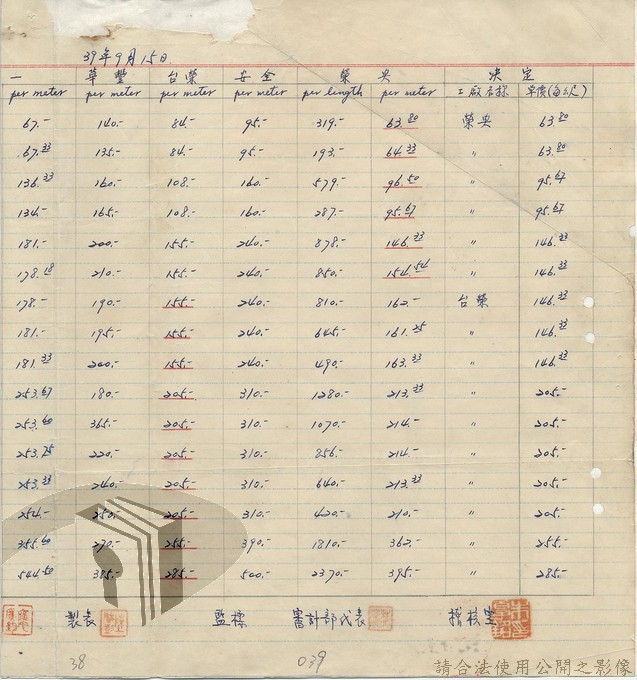 39年9月15日
一 華豐 台榮 安全 榮央 決定
per meter per meter per meter per meter per length per meter 工廠名稱 單價(每公尺)
67.- 140.- 84.- 95.- 319.- 63.80 榮央 63.80
67.33 135.- 84.- 95.- 193.- 64.33 〃 63.80
136.33 160.- 108.- 160.- 579.- 96.50 〃 95.67
134.- 165.- 108.- 160.- 287.- 95.67 〃 95.67
181.- 200.- 155.- 240.- 878.- 146.33 〃 146.33
178.18 210.- 155.- 240.- 850.- 154.54 〃 146.33
178.- 190.- 155.- 240.- 810.- 162.- 台榮 146.33
181.- 195.- 155.- 240.- 645.- 161.25 〃 146.33
181.33 200.- 155.- 240.- 490.- 163.33 〃 146.33
253.67 180.- 205.- 310.- 1280.- 213.33 〃 205.-
253.60 365.- 205.- 310.- 1070.- 214.- 〃 205.-
253.75 220.- 205.- 310.- 856.- 214.- 〃 205.-
253.33 240.- 205.- 310.- 640.- 213.33 〃 205.-
254.- 250.- 205.- 310.- 420.- 210.- 〃 205.-
355.60 270.- 255.- 390.- 1810.- 362.- 〃 255.-
544.50 385.- 285.- 500.- 2370.- 395.- 〃 285.-
製表 監標 審計部代表 稽核室
38 039
請合法使用公開之影像